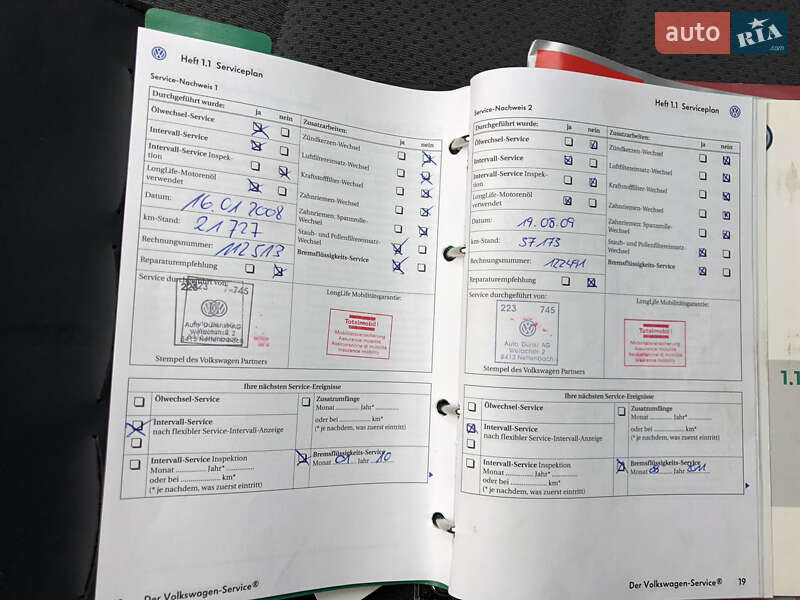 auto RIA.com
Heft 1.1 Serviceplan
Service-Nachweis 1
Durchgeführt wurde:
ja nein
Ölwechsel-Service
Intervall-Service
Intervall-Service Inspek-
tion
LongLife-Motorenöl
verwendet
Datum: 16.01 2008
km-Stand: 21727
Rechnungsnummer: 112513
Reparaturempfehlung
Zusatzarbeiten:
ja nein
Zündkerzen-Wechsel
Luftfiltereinsatz-Wechsel
Kraftstofffilter-Wechsel
Zahnriemen-Wechsel
Zahnriemen: Spannrolle-
Wechsel
Staub- und Pollenfiltereinsatz-
Wechsel
Bremsflüssigkeits-Service
Service durchgeführt von:
223 745
Auto Dürau AG
8413 Neftenbach
Stempel des Volkswagen Partners
LongLife Mobilitätsgarantie:
Totalmobil!
Mobilitätsversicherung
Assurance mobilité
Assicurazione di mobilità
Insurance mobility
Ihre nächsten Service-Ereignisse
Ölwechsel-Service
Intervall-Service
nach flexibler Service-Intervall-Anzeige
Intervall-Service Inspektion
Monat ........... Jahr* ...........
oder bei ........... km*
(* je nachdem, was zuerst eintritt)
Zusatzumfänge
Monat ........... Jahr* ...........
oder bei ........... km*
(* je nachdem, was zuerst eintritt)
Bremsflüssigkeits-Service
Monat 01 Jahr 10
Der Volkswagen-Service®
Heft 1.1 Serviceplan
Service-Nachweis 2
Durchgeführt wurde:
ja nein
Ölwechsel-Service
Intervall-Service
Intervall-Service Inspek-
tion
LongLife-Motorenöl
verwendet
Datum: 19.08.09
km-Stand: 57175
Rechnungsnummer: 122491
Reparaturempfehlung
Zusatzarbeiten:
ja nein
Zündkerzen-Wechsel
Luftfiltereinsatz-Wechsel
Kraftstofffilter-Wechsel
Zahnriemen-Wechsel
Zahnriemen: Spannrolle-
Wechsel
Staub- und Pollenfiltereinsatz-
Wechsel
Bremsflüssigkeits-Service
Service durchgeführt von:
223 745
Auto Dürau AG
8413 Neftenbach
Stempel des Volkswagen Partners
LongLife Mobilitätsgarantie:
Totalmobil!
Mobilitätsversicherung
Assurance mobilité
Assicurazione di mobilità
Insurance mobility
Ihre nächsten Service-Ereignisse
Ölwechsel-Service
Intervall-Service
nach flexibler Service-Intervall-Anzeige
Intervall-Service Inspektion
Monat ........... Jahr* ...........
oder bei ........... km*
(* je nachdem, was zuerst eintritt)
Zusatzumfänge
Monat ........... Jahr* ...........
oder bei ........... km*
(* je nachdem, was zuerst eintritt)
Bremsflüssigkeits-Service
Monat 08 Jahr
Der Volkswagen-Service® 19
1.1